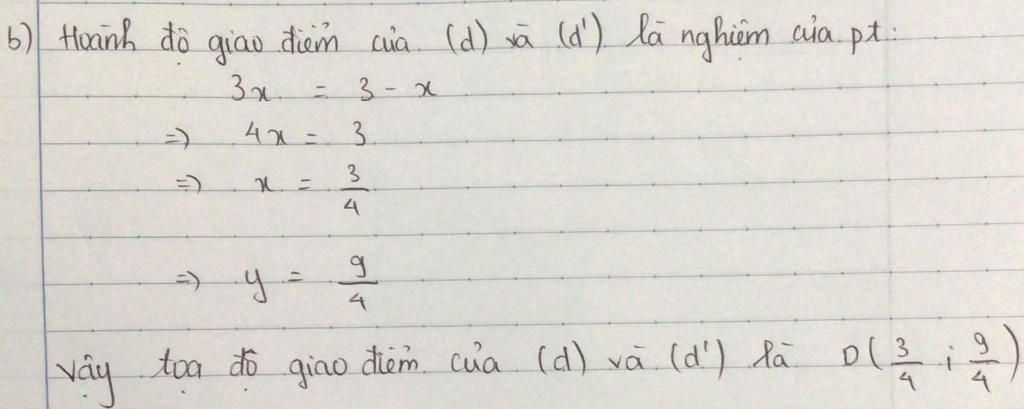 b) Hoành độ giao điểm của (d) và (d') là nghiệm của pt:
3x = 3 - x
=> 4x = 3
=> x = 3/4
=> y = 9/4
Vậy tọa độ giao điểm của (d) và (d') là D(3/4 ; 9/4)